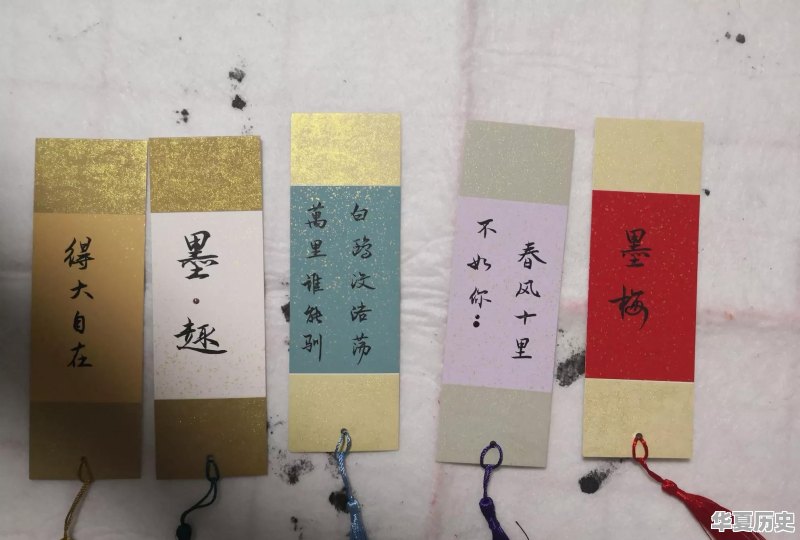 得大自在
墨·趣
白鸥没浩荡
萬里谁能驯
春风十里
不如你:
墨梅
华夏历史